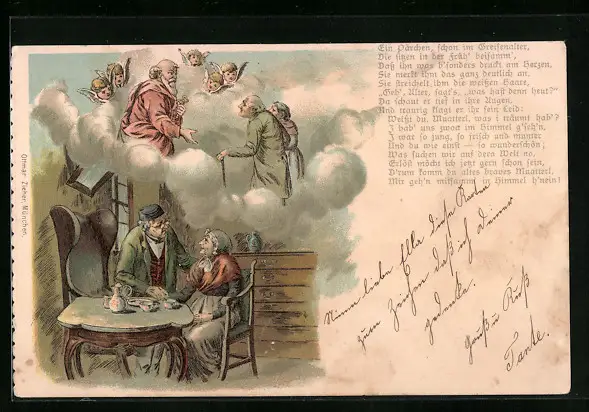 Ein Pärchen, schon im Greisenalter,
Die sitzen in der Früh' beisamm',
Daß ihm was b'sonders druckt am Herzen,
Sie merkt ihm das ganz deutlich an.
Sie streichelt ihm die weißen Haare,
„Geh', Alter, sag's, was hast denn heut?"
Da schaut er tief in ihre Augen,
Und traurig klagt er ihr sein Leid:
Weißt du, Muatterl, was i träumt hab'?
I hab' uns zwoa im Himmel g'seh'n,
I war so jung, so frisch und munter
Und du wie einst — so wunderschön;
Was suchen wir auf dera Welt no,
Erlöst möcht ich jetzt gern schon sein,
D'rum komm da altes braves Muatterl,
Wir geh'n mitsamm' in Himmel h'nein!
Ottmar Zieher, München.
Nimm liebe Ella diese Karten
zum Zeichen daß ich Deiner
gedenke.
Gruß u Kuß
Tante.